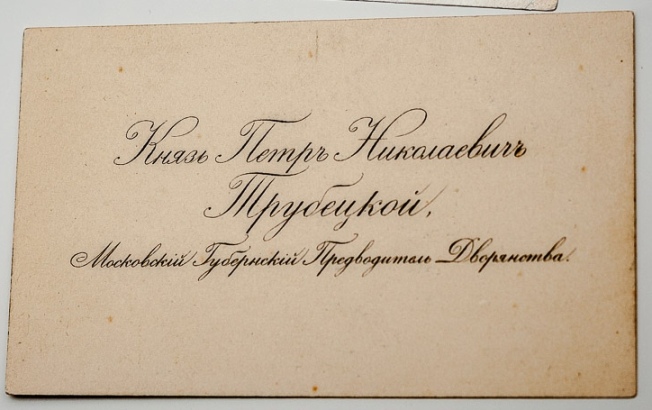 Князь Петръ Николаевичъ
Трубецкой,
Московскій Губернскій Предводитель Дворянства.